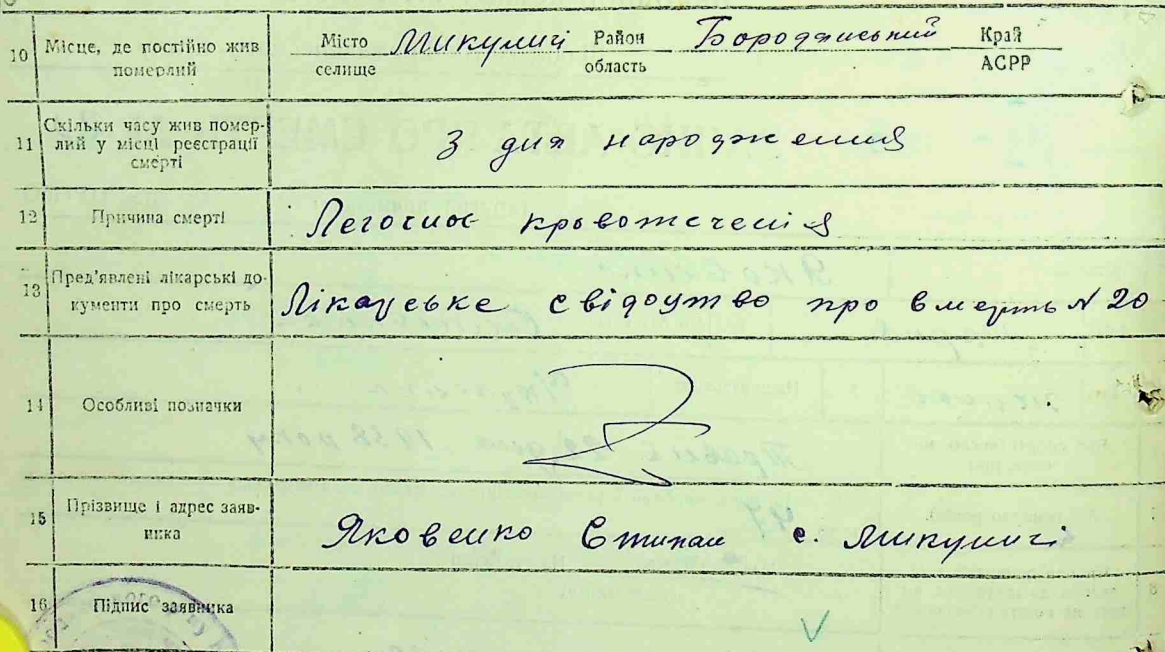 10 Місце, де постійно жив померлий Місто селище Микуличі Район область Бородянський Край АСРР
11 Скільки часу жив помер-
лий у місці реєстрації
смерті
З дня народження
12 Причина смерті Легочное кровотеченія
13 Пред'явлені лікарські до-
кументи про смерть
Лікарське свідоцтво про вмерть N 20
14 Особливі позначки
15 Прізвище і адрес заяв-
ника
Яковенко Степан с. Микуличі
16 Підпис заявника